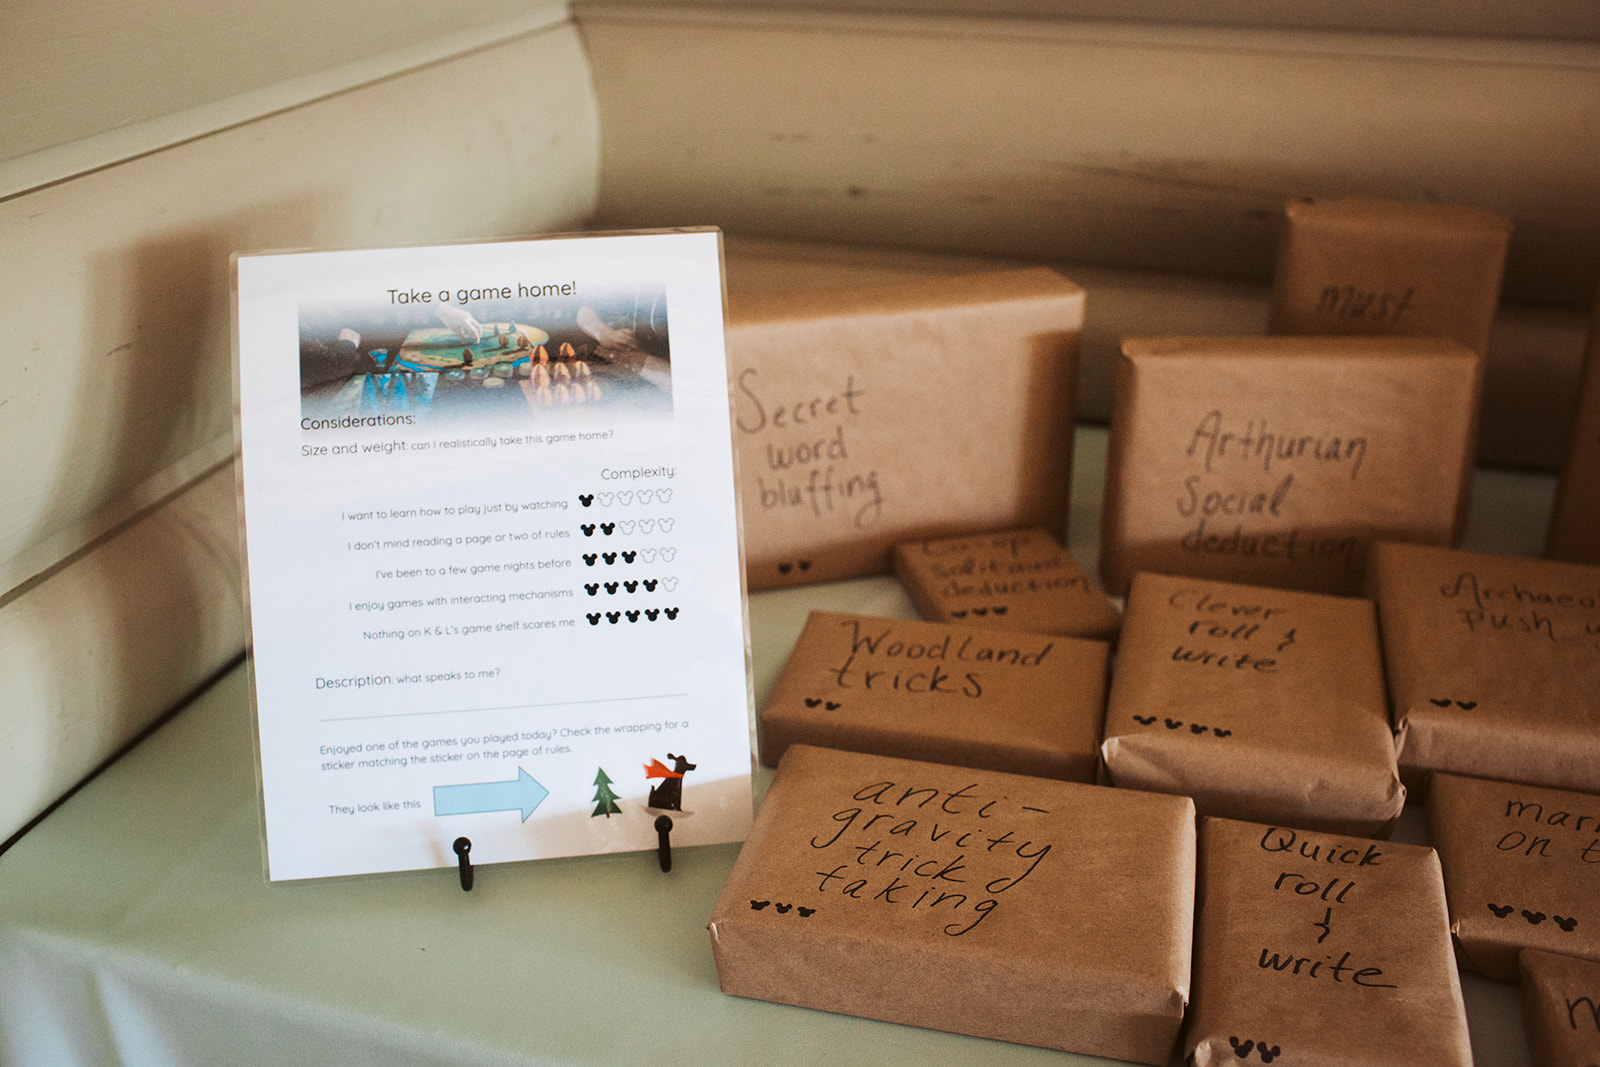 Take a game home!
Considerations:
Size and weight: can I realistically take this game home?
Complexity:
I want to learn how to play just by watching
I don't mind reading a page or two of rules
I've been to a few game nights before
I enjoy games with interacting mechanisms
Nothing on K & L's game shelf scares me
Description: what speaks to me?
Enjoyed one of the games you played today? Check the wrapping for a
sticker matching the sticker on the page of rules.
They look like this
Secret
word
bluffing
must
Arthurian
Social
deduction
Co-op
solitaire
deduction
Woodland
tricks
Clever
roll &
write
Archaeo
Push
anti-
gravity
trick
taking
Quick
roll
&
write
on